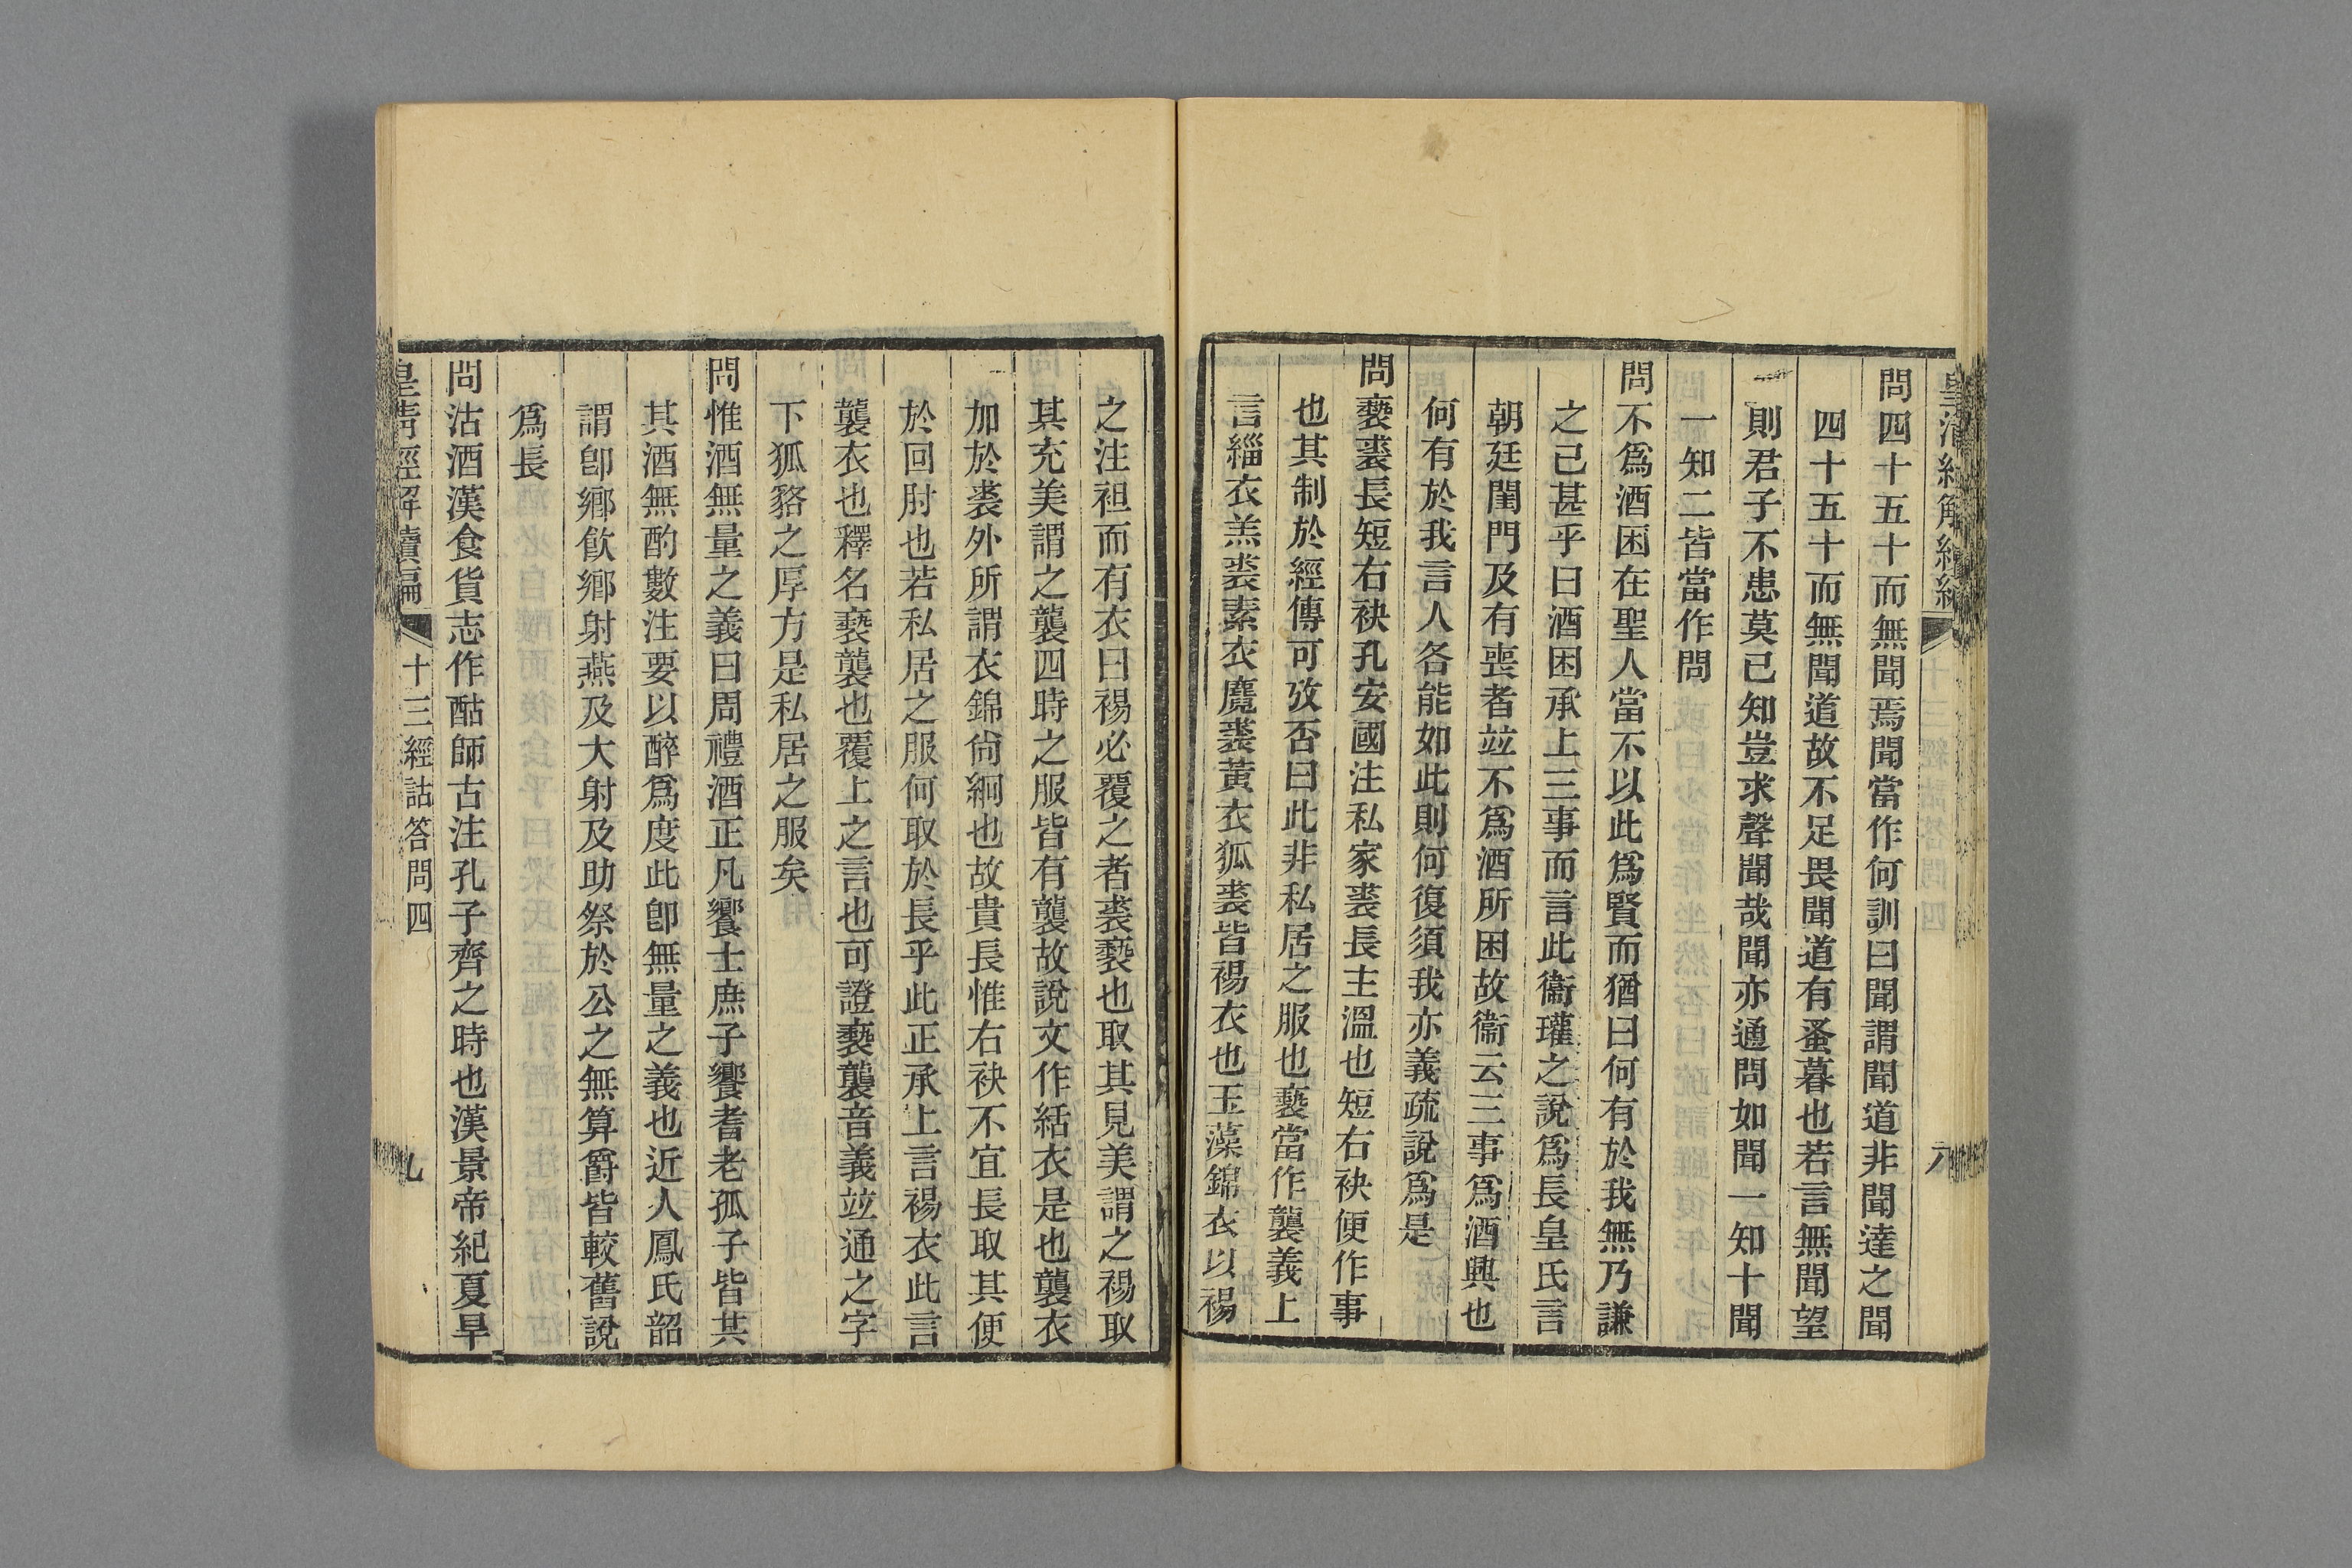 問四十五十而無聞焉聞當作何訓曰聞謂聞道非聞達之聞
四十五十而無聞道故不足畏聞道有蚤暮也若言無聞望
則君子不患莫己知豈求聲聞哉聞亦通問如聞一知十聞
一知二皆當作問
問不爲酒困在聖人當不以此爲賢而猶曰何有於我無乃謙
之己甚乎曰酒困承上三事而言此衞瓘之說爲長皇氏言
朝廷閨門及有喪者竝不爲酒所困故衞云三事爲酒興也
何有於我言人各能如此則何復須我亦義疏說爲是
問褻裘長短右袂孔安國注私家裘長主溫也短右袂便作事
也其制於經傳可攷否曰此非私居之服也褻當作襲義上
言緇衣羔裘素衣麑裘黃衣狐裘皆裼衣也玉藻錦衣以裼
之注袒而有衣曰裼必覆之者裘褻也取其見美謂之裼取
其充美謂之襲四時之服皆有襲故說文作絬衣是也襲衣
加於裘外所謂衣錦尙絅也故貴長惟右袂不宜長取其便
於回肘也若私居之服何取於長乎此正承上言裼衣此言
襲衣也釋名褻襲也覆上之言也可證褻襲音義竝通之字
下狐貉之厚方是私居之服矣
問惟酒無量之義曰周禮酒正凡饗士庶子饗耆老孤子皆共
其酒無酌數注要以醉爲度此卽無量之義也近人鳳氏韶
謂卽鄉飮鄉射燕及大射及助祭於公之無算爵皆較舊說
爲長
問沽酒漢食貨志作酤師古注孔子齊之時也漢景帝紀夏旱
皇淸經解續編
十三經詁答問四
九